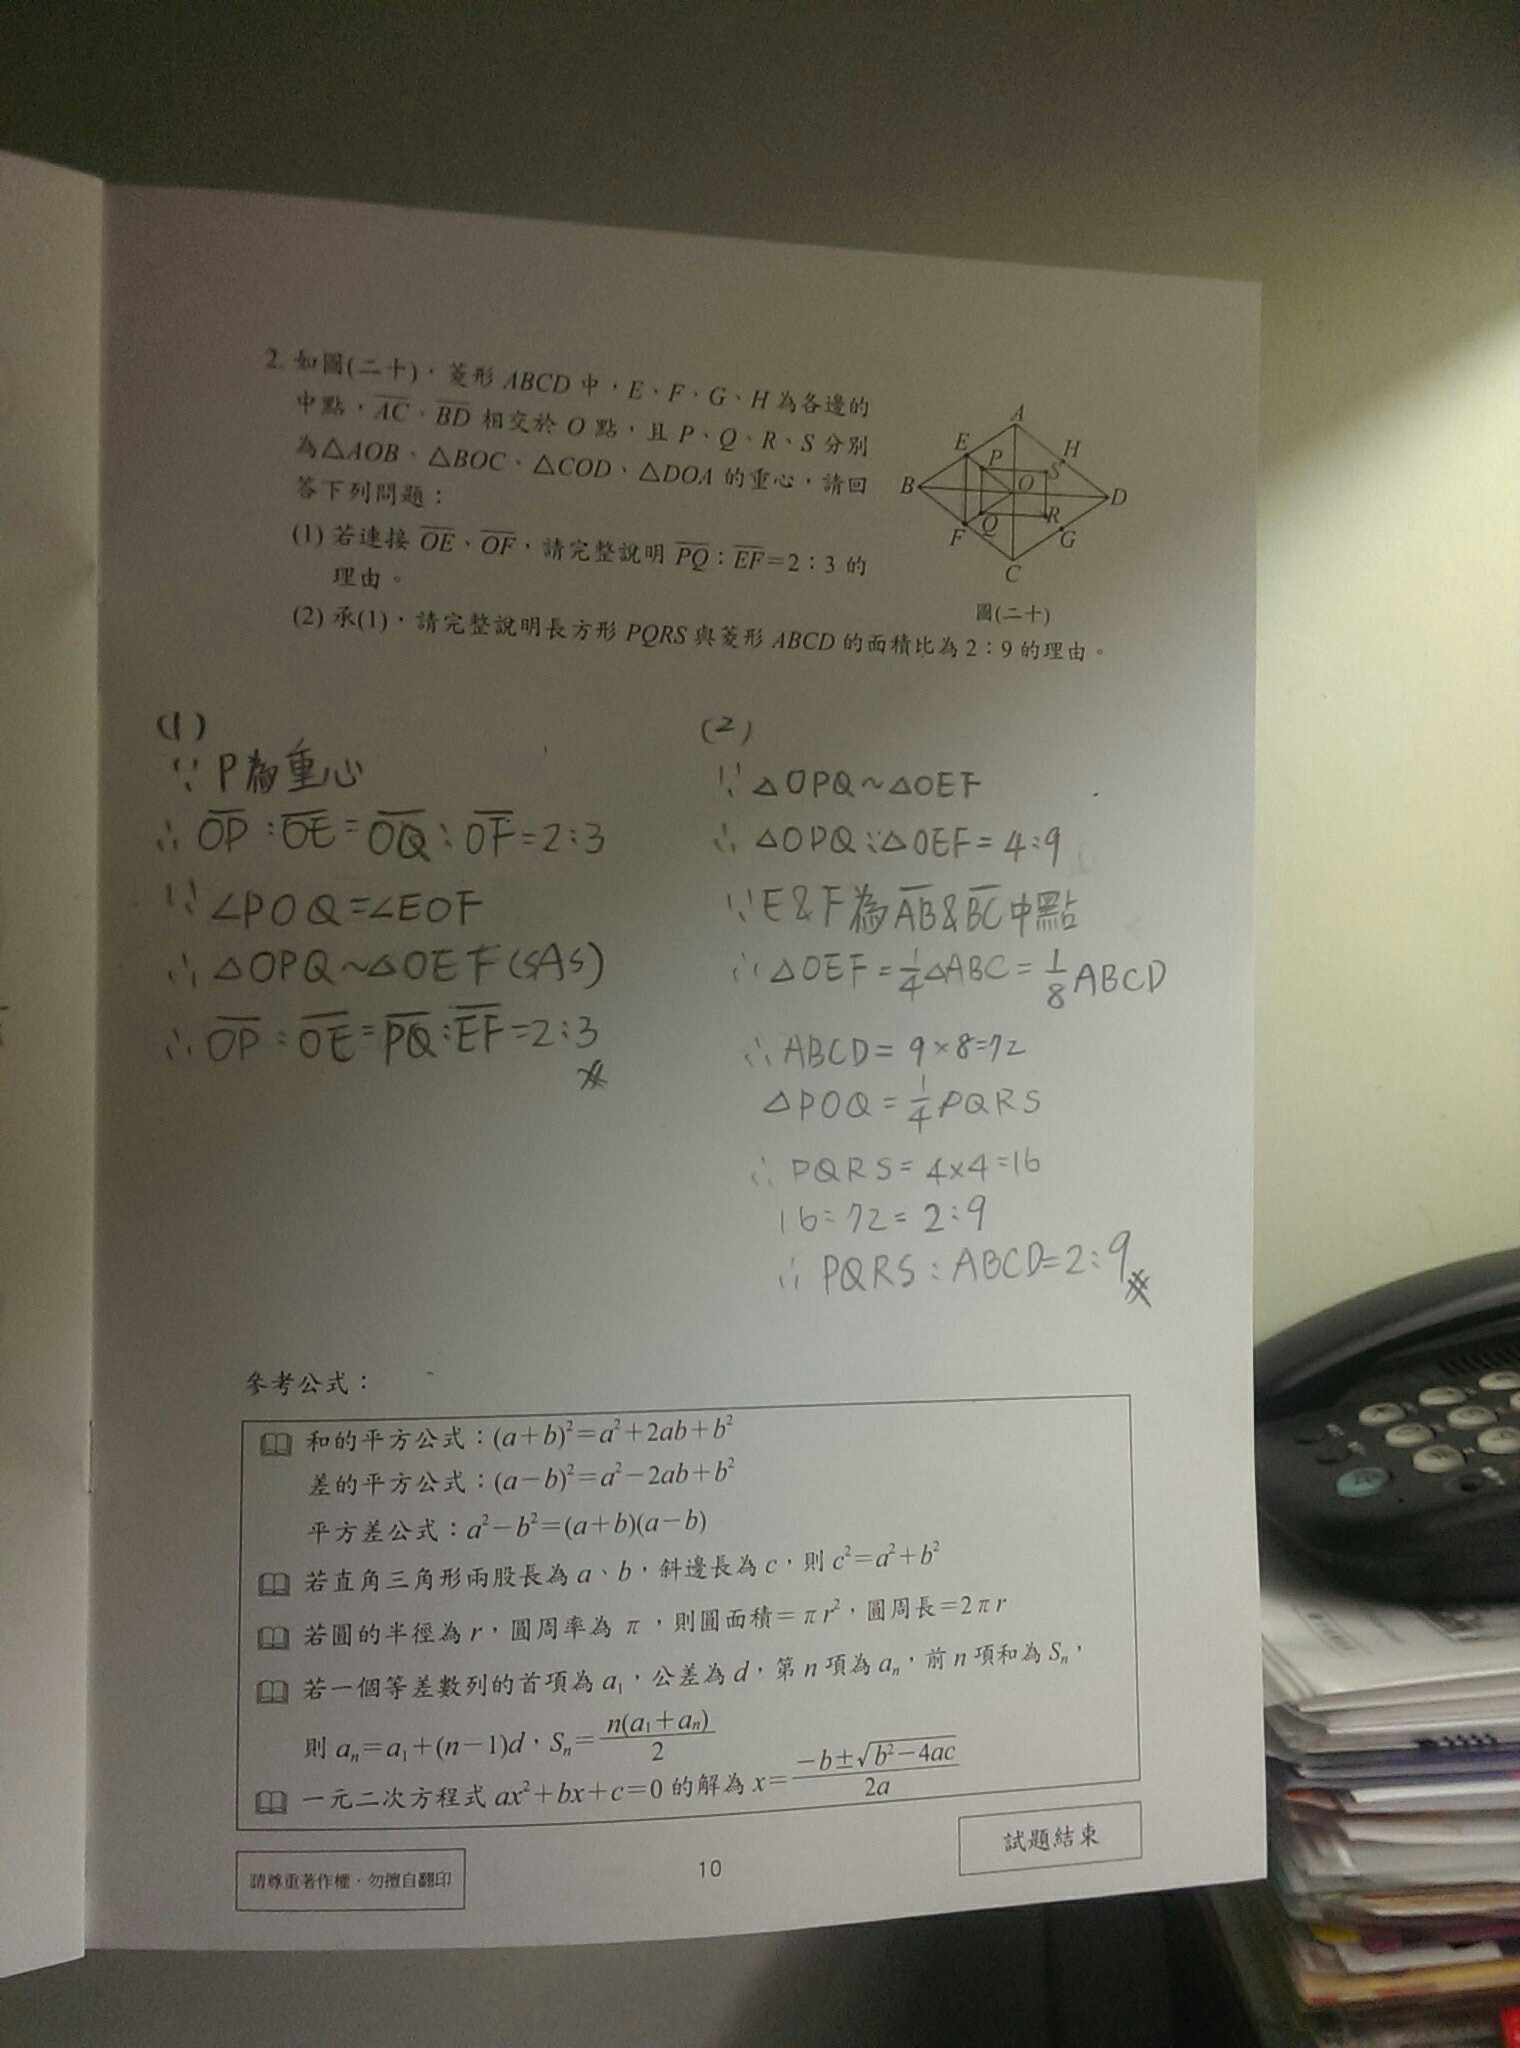 2. 如圖(二十)，菱形 ABCD 中，E、F、G、H 為各邊的
中點，AC、BD 相交於 O 點，且 P、Q、R、S 分別
為△AOB、△BOC、△COD、△DOA 的重心，請回
答下列問題：
(1) 若連接 OE、OF，請完整說明 PQ：EF＝2：3 的
理由。
(2) 承(1)，請完整說明長方形 PQRS 與菱形 ABCD 的面積比為 2：9 的理由。
A
E
H
P
S
B
O
D
Q
R
F
G
C
圖(二十)
(1)
∵ P為重心
∴ OP：OE = OQ：OF = 2：3
∵ ∠POQ=∠EOF
∴ △OPQ~△OEF (SAS)
∴ OP：OE = PQ：EF = 2：3 #
(2)
∵ △OPQ~△OEF
∴ △OPQ：△OEF = 4：9
∵ E&F為AB&BC中點
∴ △OEF = 1/4 △ABC = 1/8 ABCD
∴ ABCD = 9×8=72
△POQ = 1/4 PQRS
∴ PQRS = 4×4=16
16：72 = 2：9
∴ PQRS：ABCD=2：9 #
參考公式：
和的平方公式：(a＋b)²＝a²＋2ab＋b²
差的平方公式：(a－b)²＝a²－2ab＋b²
平方差公式：a²－b²＝(a＋b)(a－b)
若直角三角形兩股長為 a、b，斜邊長為 c，則 c²＝a²＋b²
若圓的半徑為 r，圓周率為 π，則圓面積＝πr²，圓周長＝2πr
若一個等差數列的首項為 a₁，公差為 d，第 n 項為 aₙ，前 n 項和為 Sₙ，
則 aₙ＝a₁＋(n－1)d，Sₙ＝n(a₁＋aₙ)/2
一元二次方程式 ax²＋bx＋c＝0 的解為 x＝(－b±√(b²－4ac))/2a
試題結束
請尊重著作權．勿擅自翻印
10